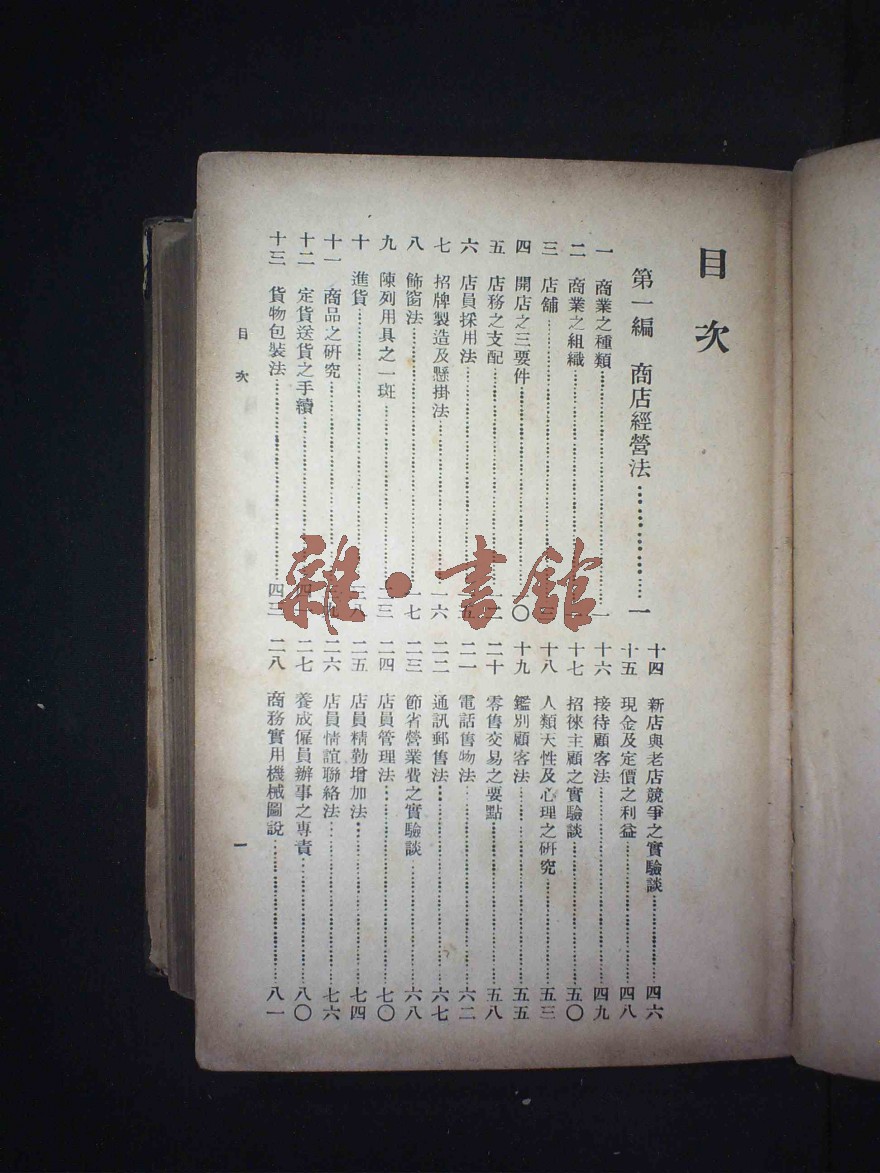 目次
第一編 商店經營法……………一
一 商業之種類……………一
二 商業之組織……………
三 店舖……………
四 開店之三要件……………〇
五 店務之支配……………二
六 店員採用法……………五
七 招牌製造及懸掛法……………一六
八 飾窗法……………一七
九 陳列用具之一斑……………三三
十 進貨……………三八
十一 商品之研究……………
十二 定貨送貨之手續……………四一
十三 貨物包裝法……………四三
十四 新店與老店競爭之實驗談……………四六
十五 現金及定價之利益……………四八
十六 接待顧客法……………四九
十七 招徠主顧之實驗談……………五〇
十八 人類天性及心理之研究……………五三
十九 鑑別顧客法……………五五
二十 零售交易之要點……………五八
二一 電話售物法……………六二
二二 通訊郵售法……………六七
二三 節省營業費之實驗談……………六八
二四 店員管理法……………七〇
二五 店員精勤增加法……………七四
二六 店員情誼聯絡法……………七六
二七 養成僱員辦事之專責……………八〇
二八 商務實用機械圖說……………八一
目次
一
雜·書館